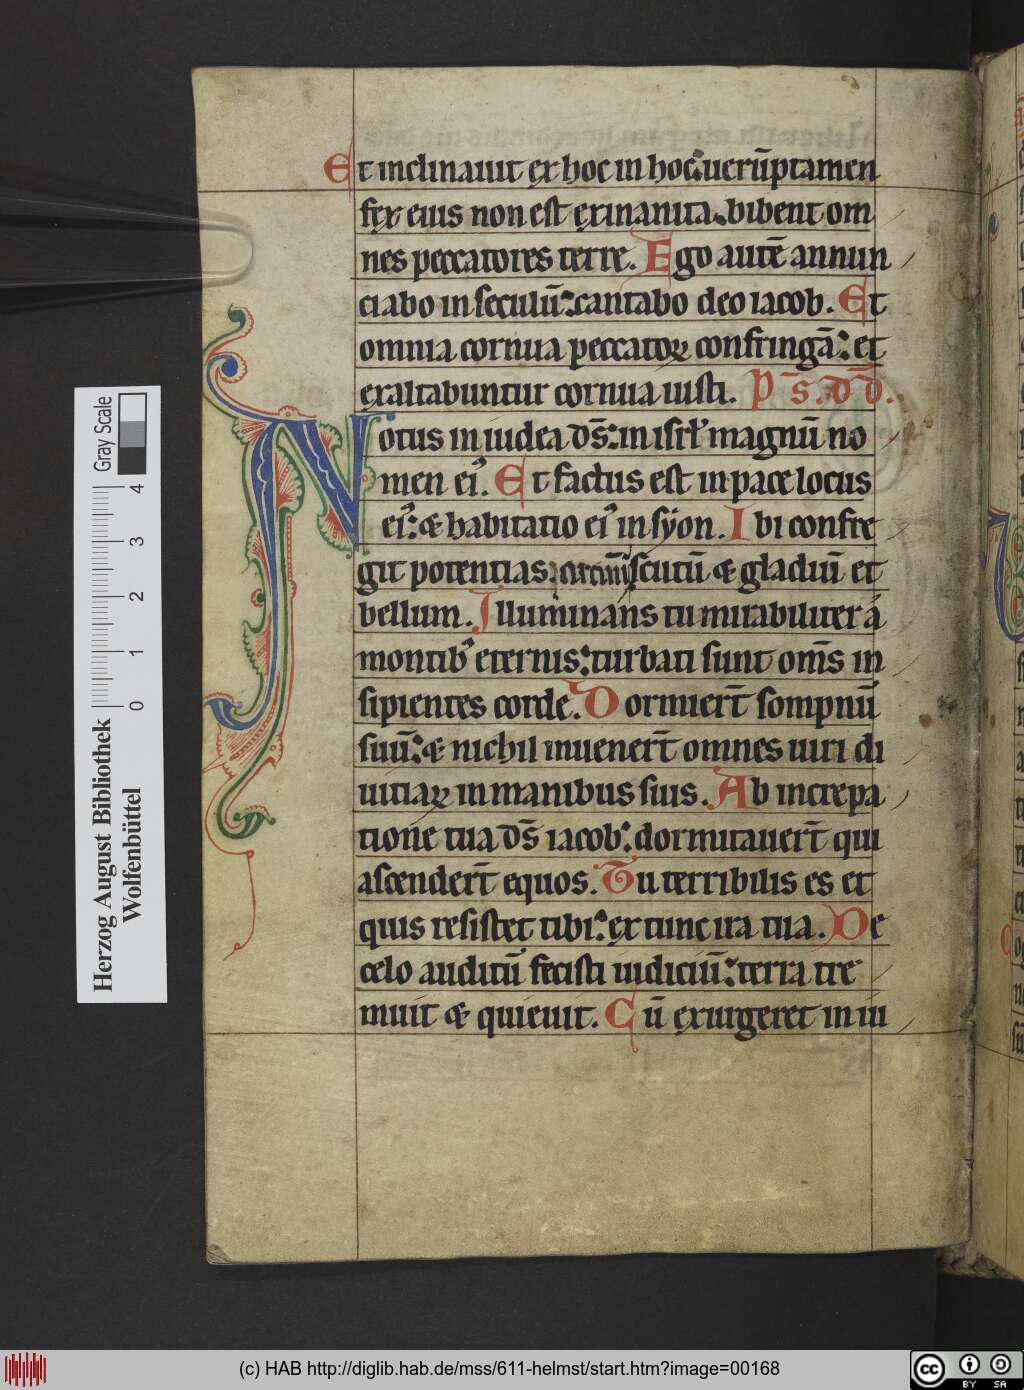 Et inclinauit ex hoc in hoc: uerūptamen
fex eius non est exinanita. bibent om
nes peccatores terre. Ego autē annun
ciabo in seculū: cantabo deo iacob. Et
omnia cornua peccatoꝝ confringā: et
exaltabuntur cornua iusti. P̄s. d̄d̄.
Notus in iudea ds̄: in isrł magnū no
men eiꝰ. Et factus est in pace locus
eiꝰ: & habitatio eiꝰ in syon. Ibi confre
git potentias: arcum scutū & gladiū et
bellum. Illuminans tu mirabiliter á
montibꝰ eternis: turbati sunt om̄s in
sipientes corde. Dormier̄t sompnū
suū: & nichil inuener̄t omnes uiri di
uitiaꝝ in manibus suis. Ab increpa
tione tua ds̄ iacob: dormitauer̄t qui
ascender̄t equos. Tu terribilis es et
quis resistet tibi: ex tunc ira tua. De
celo auditū fecisti iudiciū: terra tre
muit & quieuit. Cū exurgeret in iu
Herzog August Bibliothek
Wolfenbüttel
0 1 2 3 4
Gray Scale
(c) HAB http://diglib.hab.de/mss/611-helmst/start.htm?image=00168
cc BY SA